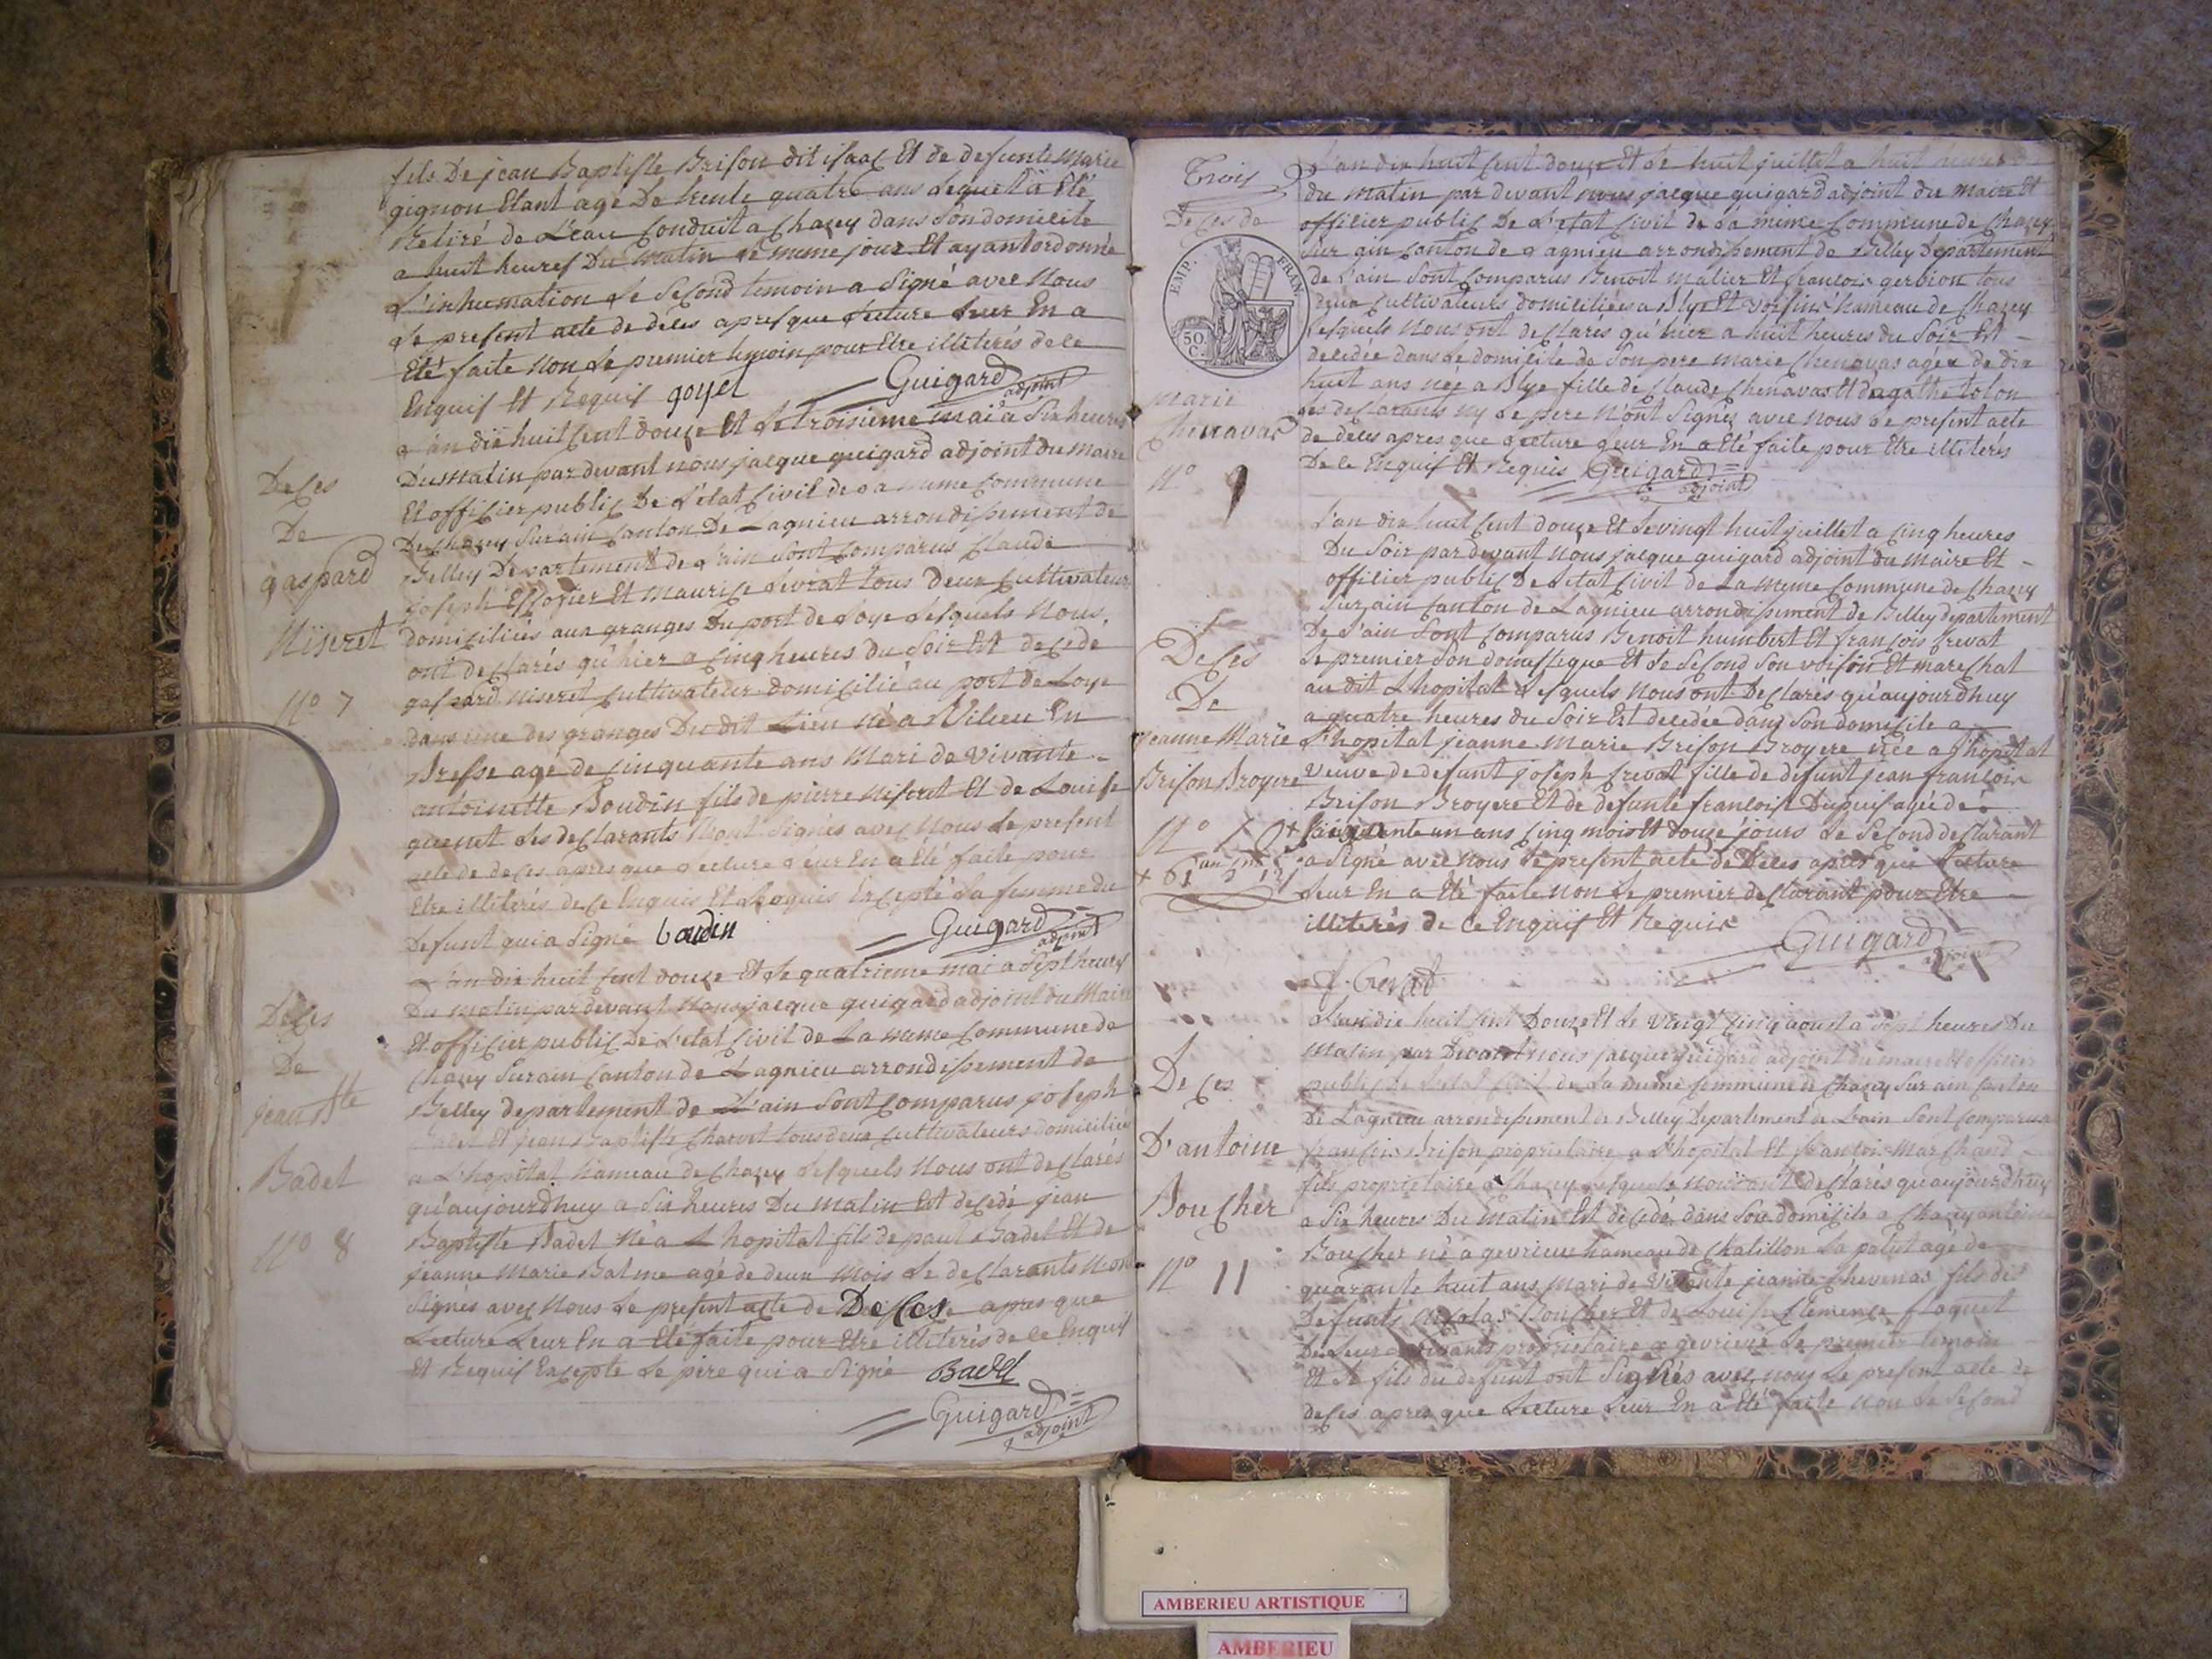 fils De jean Baptiste Brison dit isaac Et de defunte Marie
gignon Etant agé De trente quatre ans Lequel a Eté
Retiré de L'eau Conduit a Chazey dans Son domicile
a huit heures Du matin Le meme jour Et ayant ordonné
L'inhumation Le Second temoin a Signé avec Nous
Le present acte de deces apres que Lecture Leur En a
Eté faite Non Le premier temoin pour Etre illiterés de ce
Enquis Et Requis goyet Guigard
adjoint
L'an dix huit Cent douze Et Le troisieme mai a Six heures
Du Matin par devant nous jacque guigard adjoint du maire
Et officier public De L'etat Civil de La meme Commune
De Chazey Sur ain Canton De Lagnieu arrondissement de
Belley Departement de L'ain Sont Comparus Claude
joseph Et Maurice Livrat tous Deux Cultivateurs
domiciliés aux granges Du port de Loye Lesquels Nous
ont declarés qu'hier a Cinq heures du Soir Est decedé
gaspard Niseret Cultivateur domicilié au port de Loye
dans une des granges Du dit Lieu Né a Vilieu En
Bresse agé de Cinquante ans Mari de Vivante
antoinette Boudin fils de pierre Niseret Et de Louise
quenet Les declarants N'ont Signés avec Nous Le present
acte de deces apres que Lecture Leur En a Eté faite pour
Etre illiterés de Ce Enquis Et Requis Excepté La femme du
Defunt qui a Signé boudin Guigard
adjoint
Deces
De
gaspard
Niseret
N° 7
L'an dix huit Cent douze Et Le quatrieme mai a Sept heures
Du matin par devant Nous jacque guigard adjoint du Maire
Et officier public De L'etat Civil de La meme Commune de
Chazey Sur ain Canton de Lagnieu arrondissement de
Belley departement de L'ain Sont Comparus joseph
Et jean Baptiste Charvet tous deux Cultivateurs domiciliés
a L'hopital hameau de Chazey Lesquels Nous ont declarés
qu'aujourdhuy a Six heures Du Matin Est decedé jean
Baptiste Badel Né a L'hopital fils de paul Badel Et de
jeanne Marie Balme agé de deux Mois Le declarants N'ont
Signés avec Nous Le present acte de Deces apres que
Lecture Leur En a Eté faite pour Etre illiterés de Ce Enquis
Et Requis Excepte Le pere qui a Signé Badel
Guigard
adjoint
Deces
De
jean Bte
Badel
N° 8
Trois
L'an dix huit Cent douze Et Le huit juillet a huit heures
du Matin par devant nous jacque guigard adjoint du maire Et
officier public De L'etat Civil de La meme Commune de Chazey
Sur ain Canton de Lagnieu arrondissement de Belley Departement
de L'ain Sont Comparus Benoit Malier Et francois gerbion tous
deux Cultivateurs domiciliées a Blye Et Voisins hameau de Chazey
Lesquels Nous ont declarés qu'hier a huit heures du Soir Est
decedée dans Le domicile de Son pere Marie Chenavas agée de dix
huit ans née a Blye fille de Claude Chenavas Et d'agathe tolon
Les declarants ny Le pere N'ont Signés avec Nous Le present acte
de deces apres que Lecture Leur En a Eté faite pour Etre illiterés
De Ce Enquis Et Requis Guigard
adjoint
Deces de
EMP. FRAN.
50. C.
Marie
Chenavas
N° 9
L'an dix huit Cent douze Et Le vingt huit juillet a Cinq heures
Du Soir par devant Nous jacque guigard adjoint du Maire Et
officier public De L'etat Civil de La meme Commune de Chazey
Sur ain Canton de Lagnieu arrondissement de Belley departement
De L'ain Sont Comparus Benoit humbert Et francois Crevat
Le premier Son domestique Et Le Second Son voisin Et mareChal
au dit L'hopital Lesquels Nous ont Declarés qu'aujourdhuy
a quatre heures du Soir Est decedée dans Son domicile a
L'hopital jeanne Marie Brison Broyere née a L'hopital
Veuve de defunt joseph Crevat fille de defunt jean francois
Brison Broyere Et de defunte francoise Dupuis agée de
Soixante un ans Cinq mois Et douze jours Le Second declarant
a Signé avec Nous Le present acte de Deces apres que Lecture
Leur En a Eté faite Non Le premier declarant pour Etre
illiterés de Ce Enquis Et Requis Guigard
adjoint
f. Crevat
Deces
De
jeanne Marie
Brison Broyere
N° 10
L'an dix huit Cent Douze Et Le Vingt Cinq aoust a Sept heures Du
Matin par Devant nous jacque guigard adjoint du maire Et officier
public de L'etat Civil de La meme Commune de Chazey Sur ain Canton
De Lagnieu arrondissement de Belley Departement de L'ain Sont Comparus
francois Brison proprietaire a L'hopital Et francois Marchand
fils proprietaire a Chazey Lesquels Nous ont declarés qu'aujourdhuy
a Six heures Du Matin Est decedé dans Son domicile a Chazey antoine
Boucher né a gevrieux hameau de Chatillon La palut agé de
quarante huit ans Mari de Vivante jeanne Chevenas fils des
Defunts Nicolas Boucher Et de Louise Clemence floquet
De Leur vivants proprietaire a gevrieux Le premier temoin
Et Le fils du defunt ont Signés avec nous Le present acte de
deces apres que Lecture Leur En a Eté faite Non Le Second
Deces
D'antoine
Boucher
N° 11
AMBERIEU ARTISTIQUE
AMBERIEU